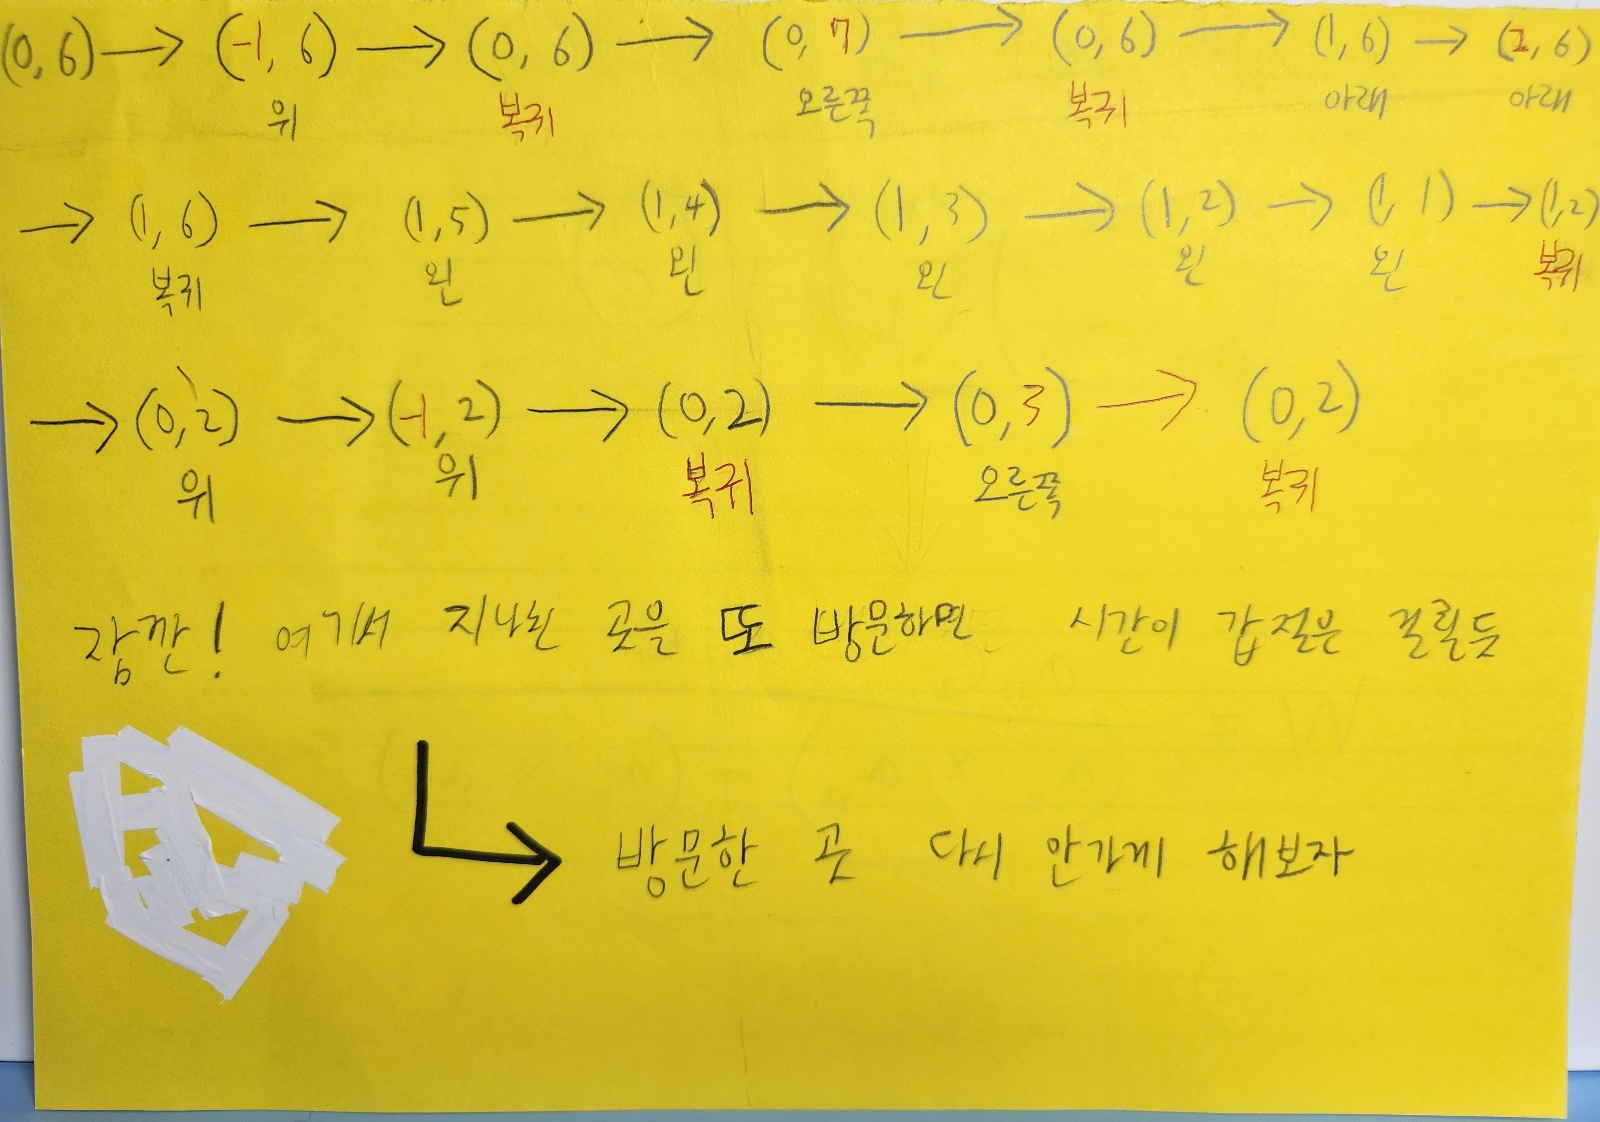 (0, 6) → (-1, 6) → (0, 6) → (0, 7) → (0, 6) → (1, 6) → (2, 6)
위 복귀 오른쪽 복귀 아래 아래
→ (1, 6) → (1, 5) → (1, 4) → (1, 3) → (1, 2) → (1, 1) → (1, 2)
복귀 왼 왼 왼 왼 왼 복귀
→ (0, 2) → (-1, 2) → (0, 2) → (0, 3) → (0, 2)
위 위 복귀 오른쪽 복귀
잠깐! 여기서 지나친 곳을 또 방문하면 시간이 갑절은 걸릴듯
방문한 곳 다시 안가게 해보자